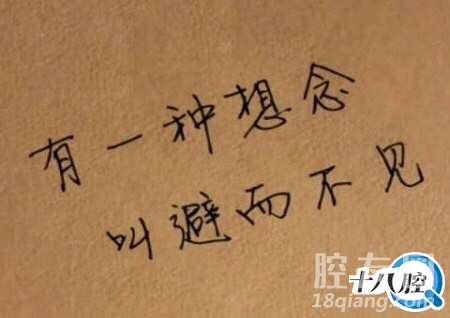 有一种想念
叫避而不见
十八腔
18qiang.com